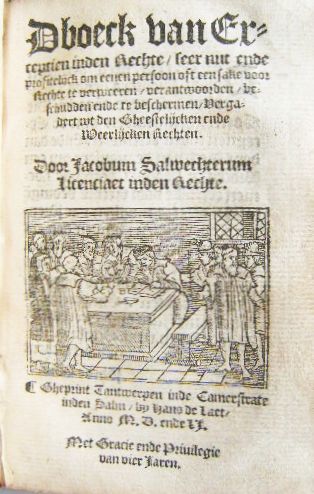 Dboeck van Ex-
ceptien inden Rechte / seer nut ende
profitelijck om eenen persoon oft een sake voor
Rechte te verweeren / verantwoorden / be-
schudden ende te beschermen / Verga-
dert wt den Gheestelijcken ende
Weerlijcken Rechten.
Door Jacobum Salwechterum
Licenciaet inden Rechte.
¶ Gheprint Tantwerpen inde Camerstrate
inden Salm / by Hans de Laet /
Anno M. D. ende LI.
Met Gracie ende Privilegie
van vier Jaren.